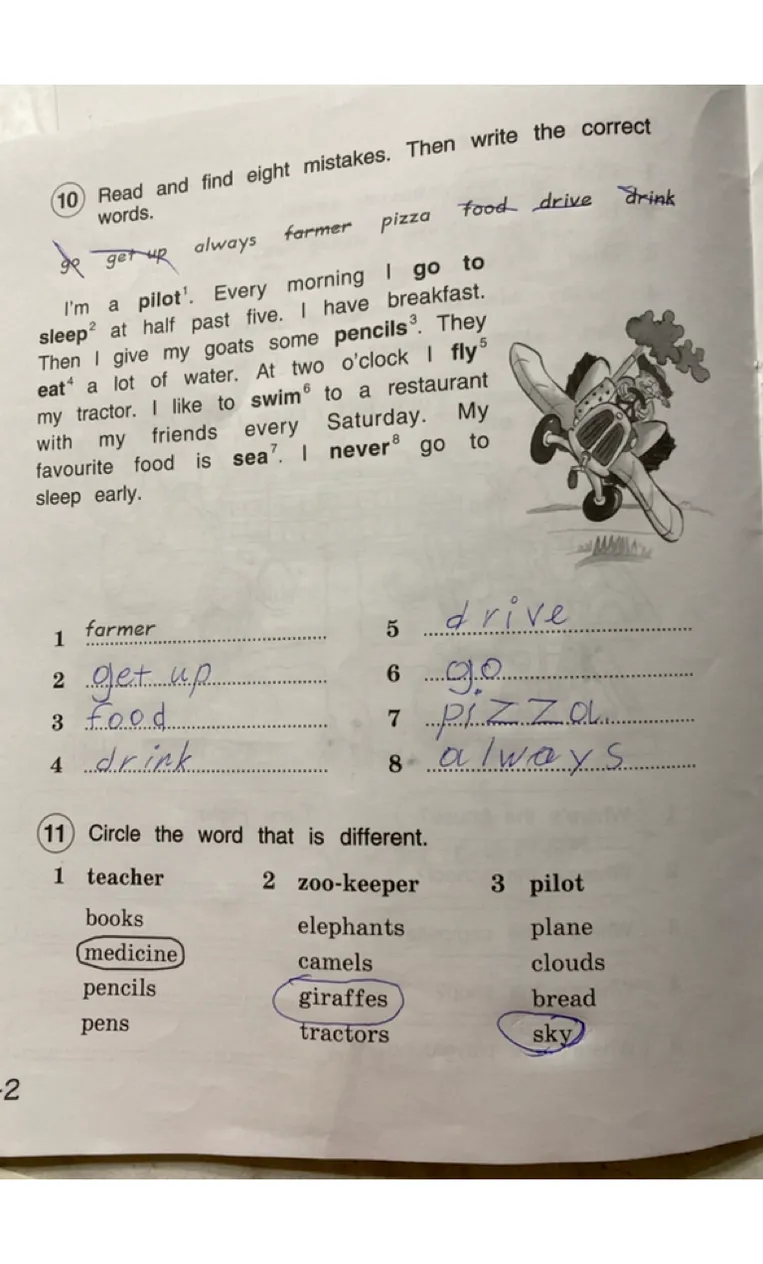 10 Read and find eight mistakes. Then write the correct
words.
go get up always farmer pizza food drive drink
I'm a pilot¹. Every morning I go to
sleep² at half past five. I have breakfast.
Then I give my goats some pencils³. They
eat⁴ a lot of water. At two o'clock I fly⁵
my tractor. I like to swim⁶ to a restaurant
with my friends every Saturday. My
favourite food is sea⁷. I never⁸ go to
sleep early.
1 farmer 5 drive
2 get up 6 go
3 food 7 pizza
4 drink 8 always
11 Circle the word that is different.
1 teacher 2 zoo-keeper 3 pilot
books elephants plane
medicine camels clouds
pencils giraffes bread
pens tractors sky
-2